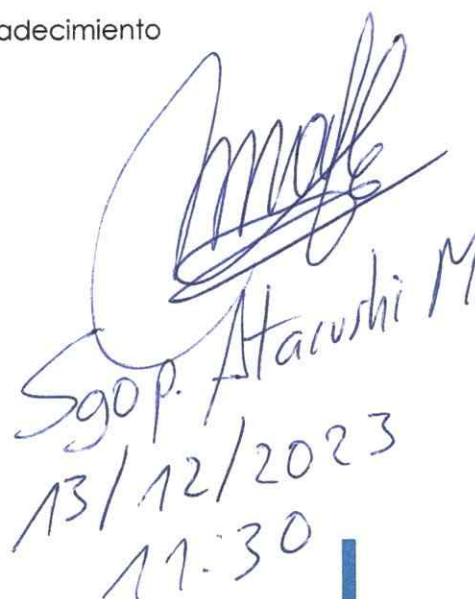 adecimiento
Sgop. Atacushi M
13/12/2023
11:30